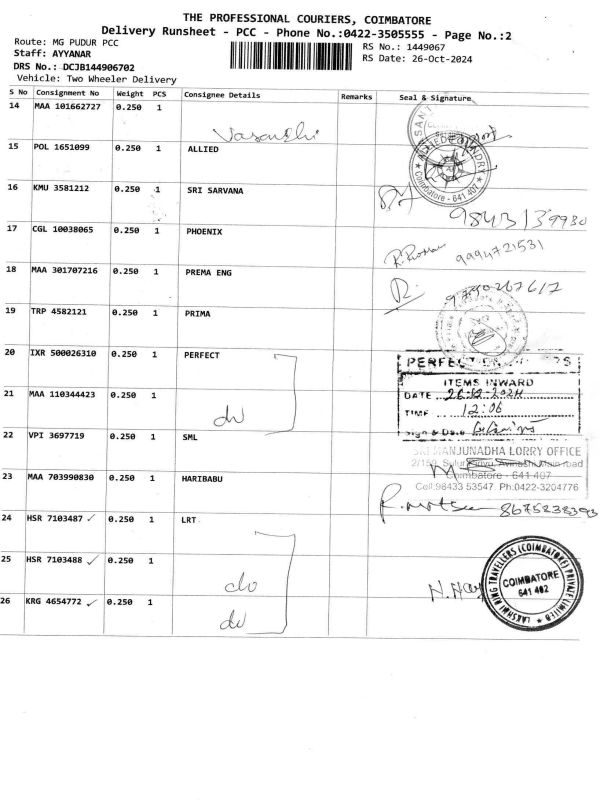 THE PROFESSIONAL COURIERS, COIMBATORE
Delivery Runsheet - PCC - Phone No.:0422-3505555 - Page No.:2
Route: MG PUDUR PCC
RS No.: 1449067
Staff: AYYANAR
RS Date: 26-Oct-2024
DRS No.: DCJB144906702
Vehicle: Two Wheeler Delivery
S No Consignment No Weight PCS Consignee Details Remarks Seal & Signature
14 MAA 101662727 0.250 1
Vasanthi
15 POL 1651099 0.250 1 ALLIED
ALLIED FOUNDRY
Coimbatore - 641 407
16 KMU 3581212 0.250 1 SRI SARVANA
9843139980
17 CGL 10038065 0.250 1 PHOENIX
9994721531
18 MAA 301707216 0.250 1 PREMA ENG
9790267617
19 TRP 4582121 0.250 1 PRIMA
20 IXR 500026310 0.250 1 PERFECT
ITEMS INWARD
21 MAA 110344423 0.250 1
do
DATE
TIME 12:06
Sign & Date
22 VPI 3697719 0.250 1 SML
SRI MANJUNADHA LORRY OFFICE
Avinashi Main road
Coimbatore - 641 407
Cell:98433 53547. Ph:0422-3204776
23 MAA 703990830 0.250 1 HARIBABU
8675238393
24 HSR 7103487 ✓ 0.250 1 LRT
25 HSR 7103488 ✓ 0.250 1
do
LAKSHMI RING TRAVELLERS (COIMBATORE) PRIVATE LIMITED
COIMBATORE
641 402
26 KRG 4654772 ✓ 0.250 1
do